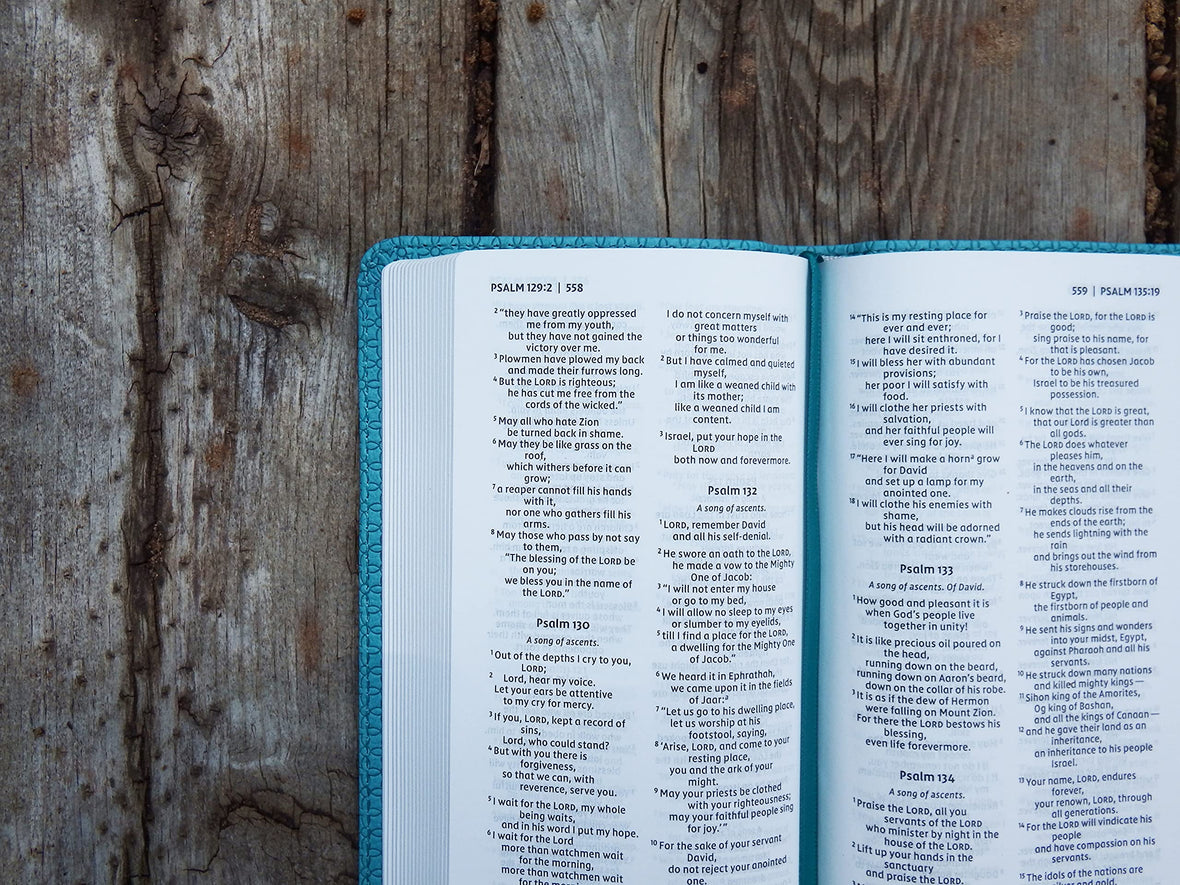 PSALM 129:2 | 558
2 “they have greatly oppressed
me from my youth,
but they have not gained the
victory over me.
3 Plowmen have plowed my back
and made their furrows long.
4 But the LORD is righteous;
he has cut me free from the
cords of the wicked.”
5 May all who hate Zion
be turned back in shame.
6 May they be like grass on the
roof,
which withers before it can
grow;
7 a reaper cannot fill his hands
with it,
nor one who gathers fill his
arms.
8 May those who pass by not say
to them,
“The blessing of the LORD be
on you;
we bless you in the name of
the LORD.”
Psalm 130
A song of ascents.
1 Out of the depths I cry to you,
LORD;
2 Lord, hear my voice.
Let your ears be attentive
to my cry for mercy.
3 If you, LORD, kept a record of
sins,
Lord, who could stand?
4 But with you there is
forgiveness,
so that we can, with
reverence, serve you.
5 I wait for the LORD, my whole
being waits,
and in his word I put my hope.
6 I wait for the Lord
more than watchmen wait
for the morning,
more than watchmen wait
for the
I do not concern myself with
great matters
or things too wonderful
for me.
2 But I have calmed and quieted
myself,
I am like a weaned child with
its mother;
like a weaned child I am
content.
3 Israel, put your hope in the
LORD
both now and forevermore.
Psalm 132
A song of ascents.
1 LORD, remember David
and all his self-denial.
2 He swore an oath to the LORD,
he made a vow to the Mighty
One of Jacob:
3 “I will not enter my house
or go to my bed,
4 I will allow no sleep to my eyes
or slumber to my eyelids,
5 till I find a place for the LORD,
a dwelling for the Mighty One
of Jacob.”
6 We heard it in Ephrathah,
we came upon it in the fields
of Jaar:a
7 “Let us go to his dwelling place,
let us worship at his
footstool, saying,
8 ‘Arise, LORD, and come to your
resting place,
you and the ark of your
might.
9 May your priests be clothed
with your righteousness;
may your faithful people sing
for joy.’”
10 For the sake of your servant
David,
do not reject your anointed
one.
559 | PSALM 135:19
14 “This is my resting place for
ever and ever;
here I will sit enthroned, for I
have desired it.
15 I will bless her with abundant
provisions;
her poor I will satisfy with
food.
16 I will clothe her priests with
salvation,
and her faithful people will
ever sing for joy.
17 “Here I will make a horna grow
for David
and set up a lamp for my
anointed one.
18 I will clothe his enemies with
shame,
but his head will be adorned
with a radiant crown.”
Psalm 133
A song of ascents. Of David.
1 How good and pleasant it is
when God’s people live
together in unity!
2 It is like precious oil poured on
the head,
running down on the beard,
running down on Aaron’s beard,
down on the collar of his robe.
3 It is as if the dew of Hermon
were falling on Mount Zion.
For there the LORD bestows his
blessing,
even life forevermore.
Psalm 134
A song of ascents.
1 Praise the LORD, all you
servants of the LORD
who minister by night in the
house of the LORD.
2 Lift up your hands in the
sanctuary
and praise the LORD.
3 Praise the LORD, for the LORD is
good;
sing praise to his name, for
that is pleasant.
4 For the LORD has chosen Jacob
to be his own,
Israel to be his treasured
possession.
5 I know that the LORD is great,
that our Lord is greater than
all gods.
6 The LORD does whatever
pleases him,
in the heavens and on the
earth,
in the seas and all their
depths.
7 He makes clouds rise from the
ends of the earth;
he sends lightning with the
rain
and brings out the wind from
his storehouses.
8 He struck down the firstborn of
Egypt,
the firstborn of people and
animals.
9 He sent his signs and wonders
into your midst, Egypt,
against Pharaoh and all his
servants.
10 He struck down many nations
and killed mighty kings—
11 Sihon king of the Amorites,
Og king of Bashan,
and all the kings of Canaan—
12 and he gave their land as an
inheritance,
an inheritance to his people
Israel.
13 Your name, LORD, endures
forever,
your renown, LORD, through
all generations.
14 For the LORD will vindicate his
people
and have compassion on his
servants.
15 The idols of the nations are
silver and gold,